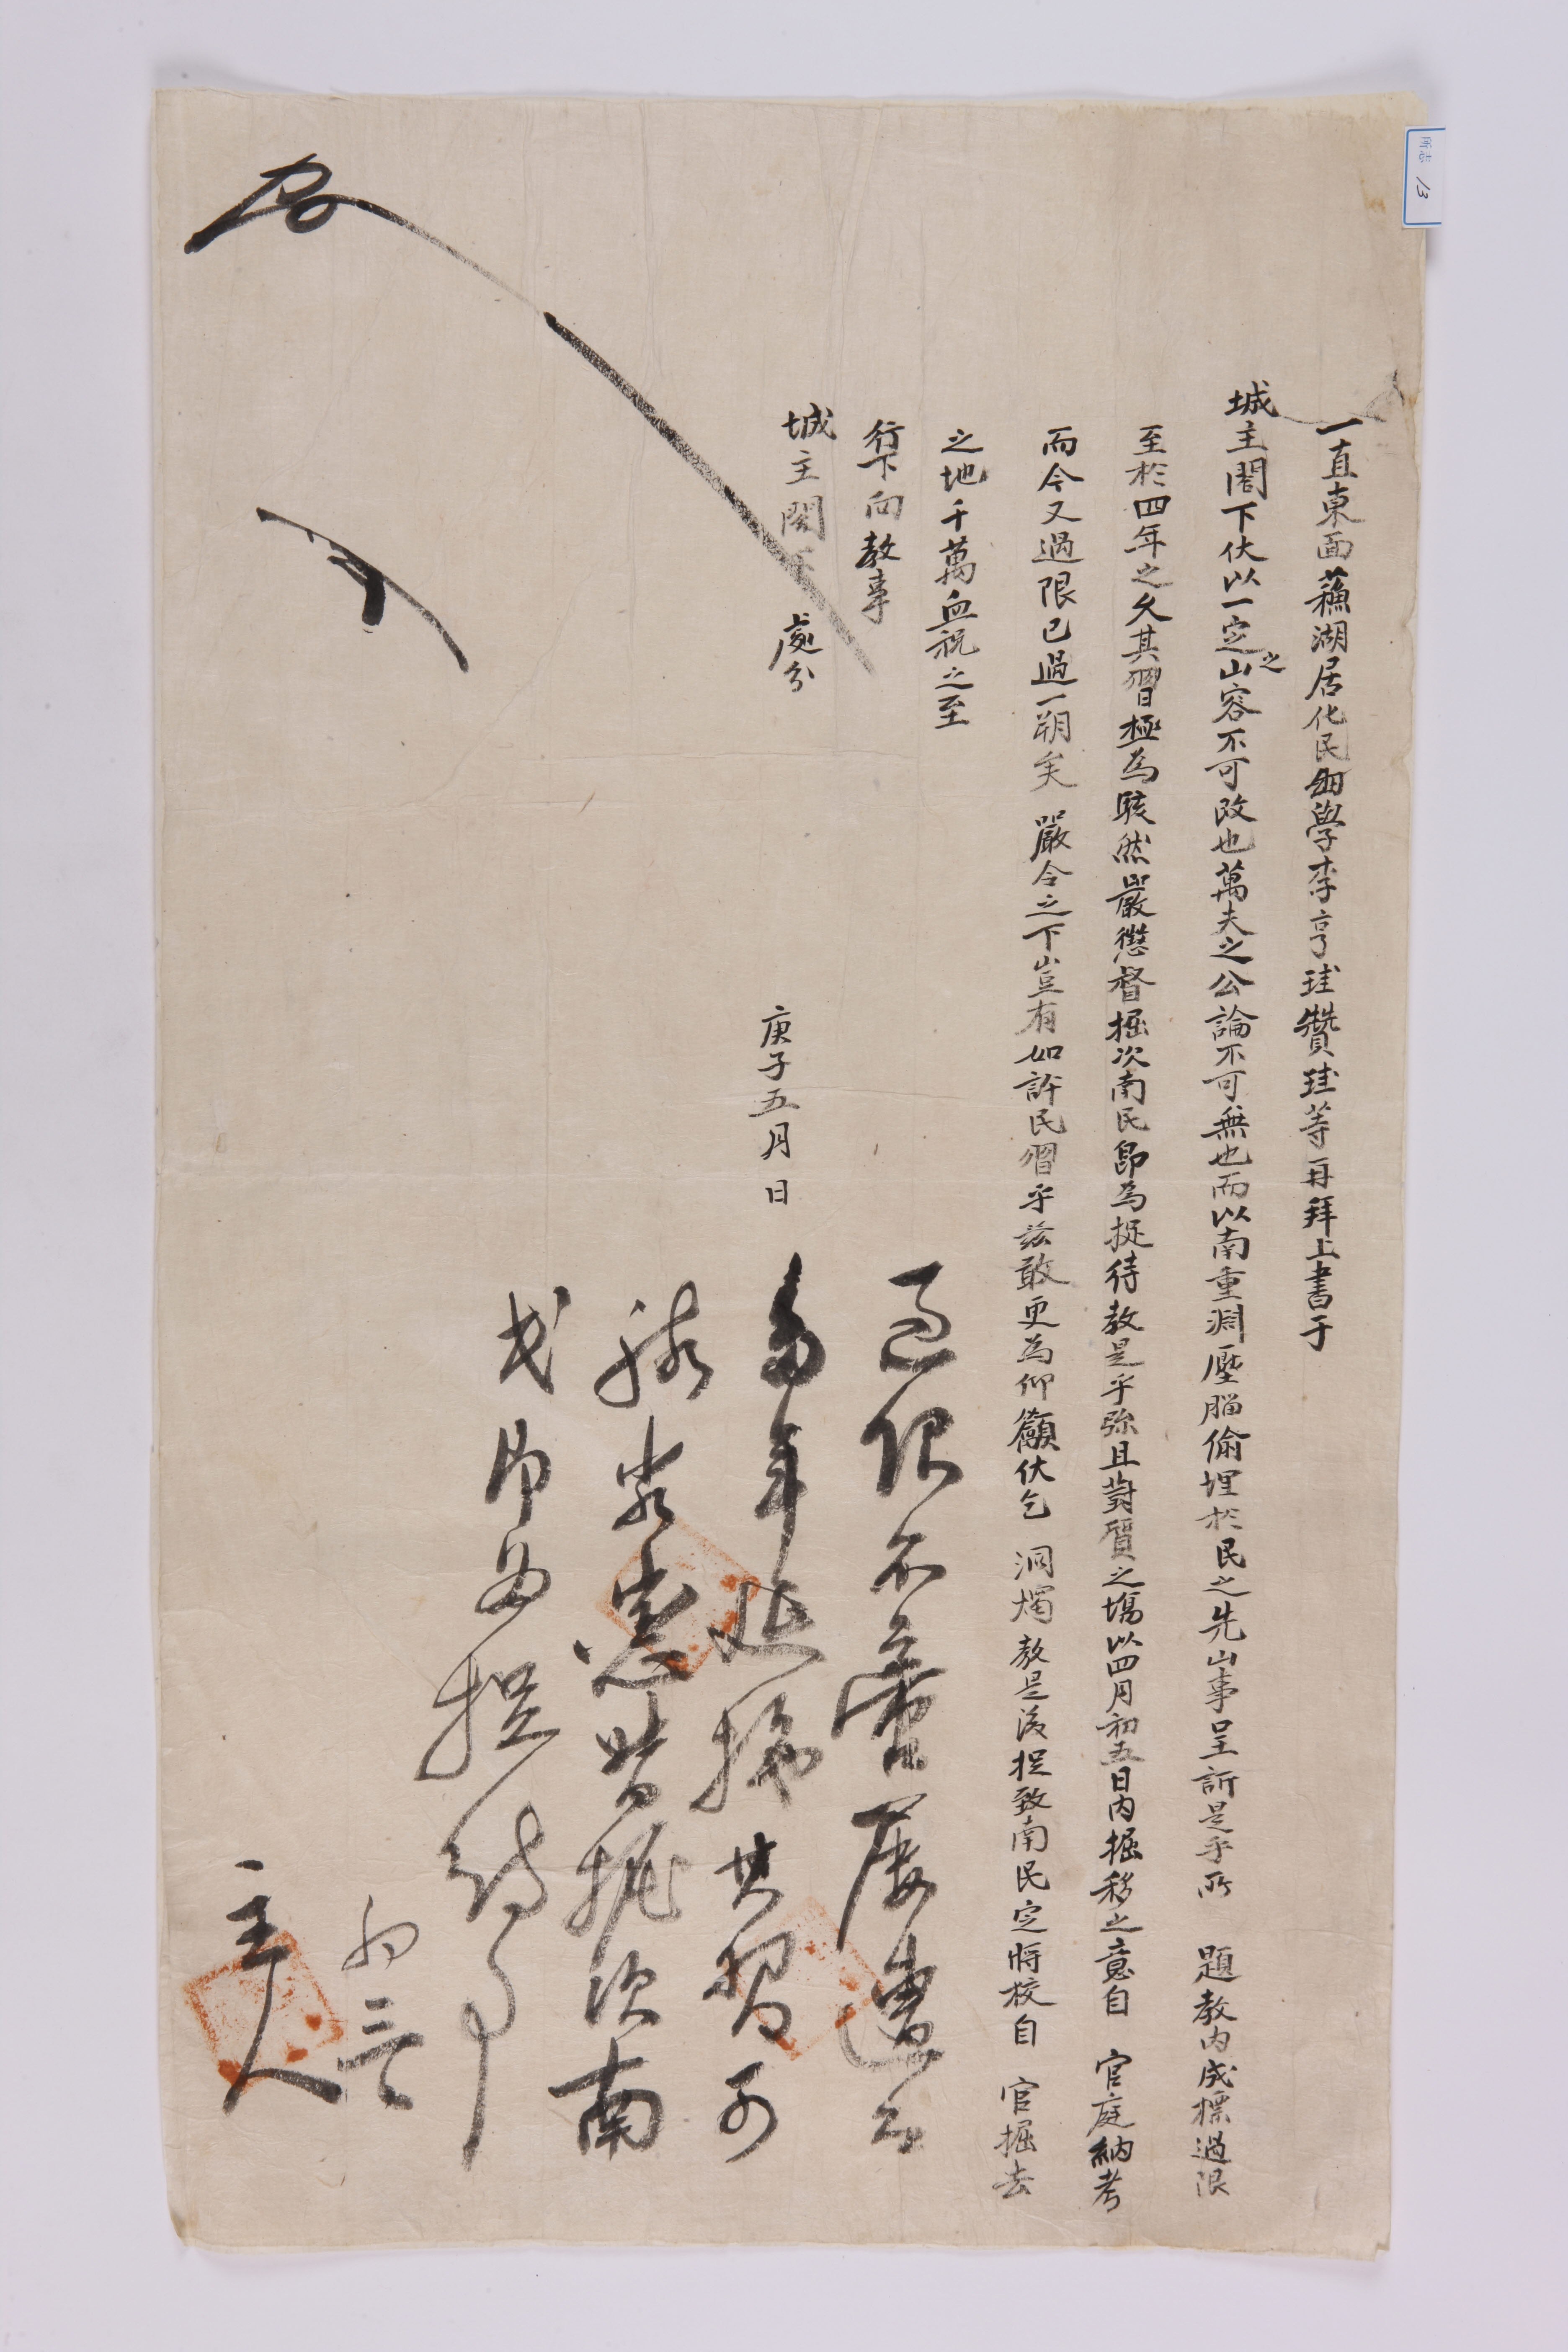 所志 13
一直東面蘓湖居化民幼學李亨珪贊珪等再拜上書于
城主閤下伏以一定之山容不可改也萬夫之公論不可無也而以南重淵壓腦偷埋於民之先山事呈訴是乎所 題敎內成標過限
至於四年之久其習極爲駭然嚴懲督掘次南民卽爲捉待敎是乎弥且對質之塲以四月初五日內掘移之意自 官庭納考
而今又過限已過一朔矣 嚴令之下豈有如許民習乎玆敢更爲仰籲伏乞 洞燭敎是後捉致南民定將校自 官掘去
之地千萬血祝之至
行下向敎事
城主閤下 處分
庚子五月 日
過限不啻屢遭而
多年延拖其習可
駭嚴懲督掘次南
民卽爲捉待事
初三
主人